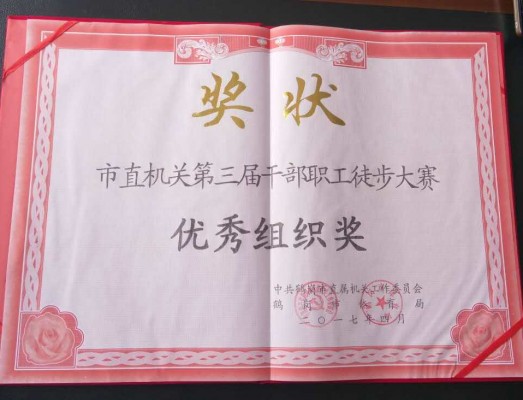 奖状
市直机关第三届干部职工徒步大赛
优秀组织奖
中共鹤岗市直属机关工作委员会
鹤岗市体育局
二〇一七年四月